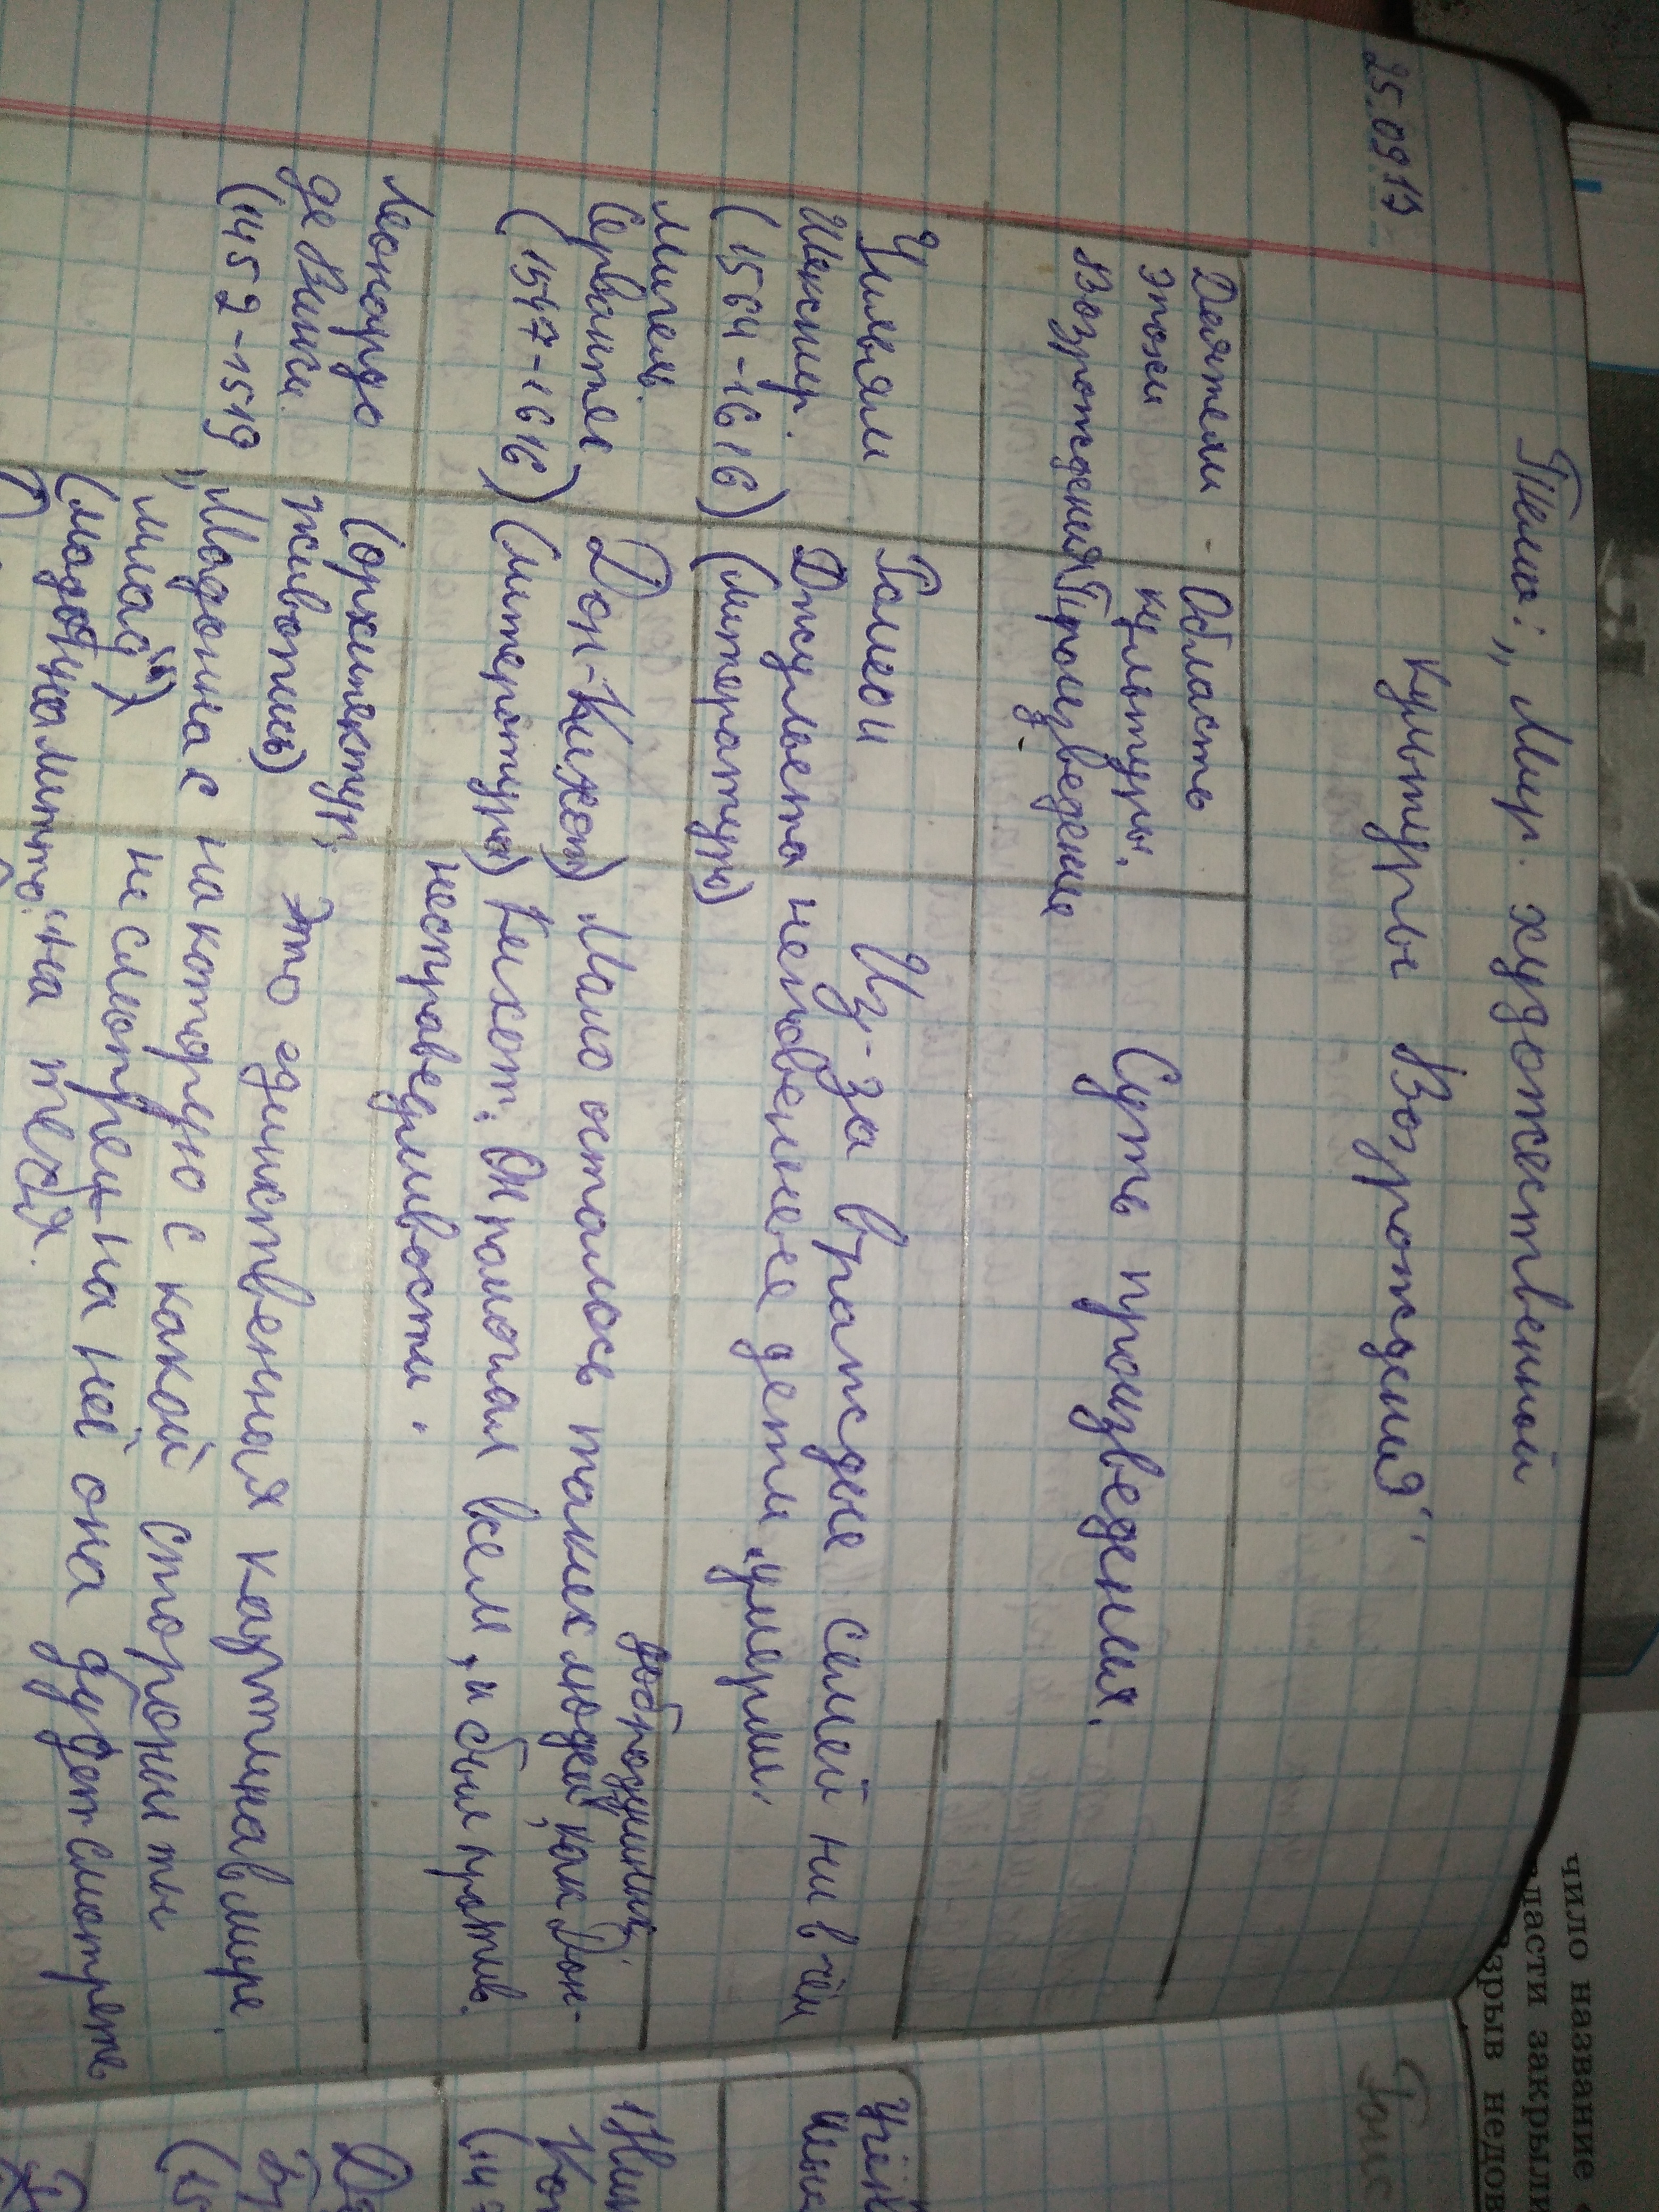 25.09.19
Тема: „Мир художественной
культуры Возрождения"
Деятели
эпохи
Возрождения
- Область
культуры.
Произведение
Суть произведения.
Уильям
Шекспир.
(1564-1616)
Ромео и
Джульета
(литература)
Из-за вражды семей ни в чём
неповенные дети умерли.
Мигель
Сервантес
(1547-1616)
Дон-Кихот
(литература)
добродушных
Мало осталось таких людей, как Дон-
Кихот. Он помогал всем, и был против
несправедливости.
Леонардо
де Винчи.
(1452-1519
(архитектур,
живопись)
„Мадонна с
(мадонна литта"
Это единственная картина в мире.
на которую с какой стороны ты
не смотрел на неё она будет смотреть
на тебя.
чило название
власти закрыли